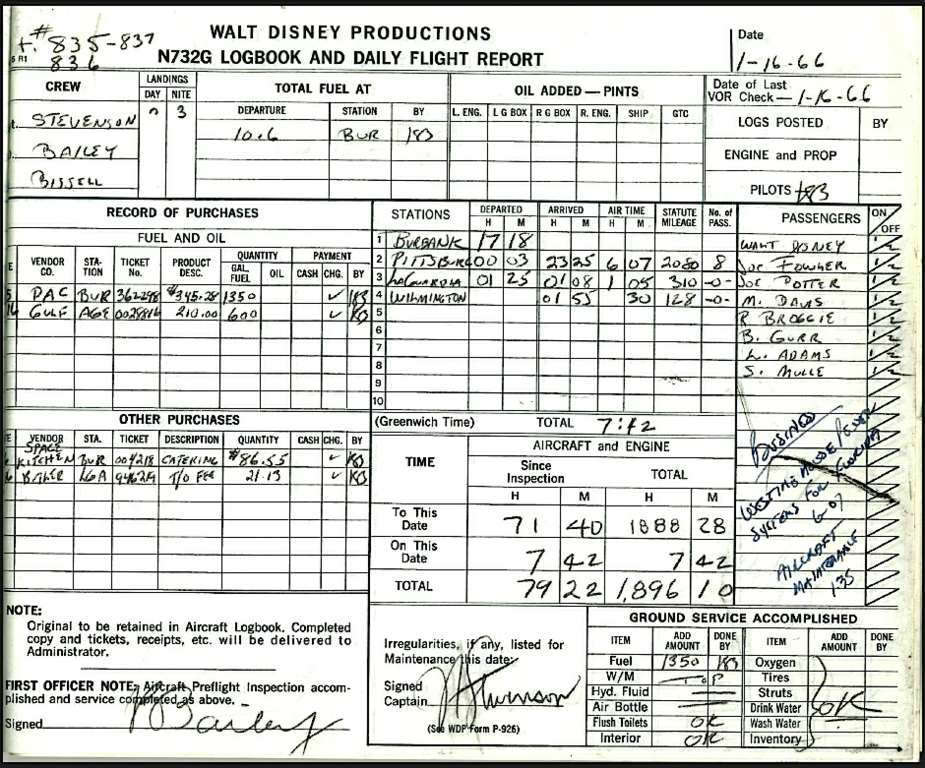 # 835-837
836
WALT DISNEY PRODUCTIONS
N732G LOGBOOK AND DAILY FLIGHT REPORT
Date
1-16-66
CREW
LANDINGS
DAY NITE
3
STEVENSON
BAILEY
BISSELL
TOTAL FUEL AT
DEPARTURE STATION BY
10.6 BUR
OIL ADDED—PINTS
L. ENG. L G BOX R G BOX R. ENG. SHIP GTC
Date of Last
VOR Check— 1-16-66
LOGS POSTED BY
ENGINE and PROP
PILOTS
RECORD OF PURCHASES
FUEL AND OIL
VENDOR CO. STA-TION TICKET No. PRODUCT DESC. QUANTITY GAL. FUEL OIL PAYMENT CASH CHG. BY
PAC BUR 362298 $345.28 1350 ✓
GULF AGE 0028816 210.00 600 ✓ KB
OTHER PURCHASES
VENDOR STA. TICKET DESCRIPTION QUANTITY CASH CHG. BY
SPACE
KITCHEN BUR 004218 CATERING $86.55 ✓ KB
BUTLER LGA T/O FEE 21.13 ✓ KB
STATIONS DEPARTED H M ARRIVED H M AIR TIME H M STATUTE MILEAGE No. of PASS.
1 BURBANK 17 18
2 PITTSBURG 00 03 23 25 6 07 2080 8
3 LaGUARDIA 01 25 01 08 1 05 310 -0-
4 WILMINGTON 01 55 30 128 -0-
5
6
7
8
9
10
(Greenwich Time) TOTAL 7:42
PASSENGERS ON OFF
WALT DISNEY 1/2
JOE FOWLER 1/2
JOE POTTER 1/2
M. DAVIS 1/2
R BROGGIE 1/2
B. GURR 1/2
L. ADAMS 1/2
S. MULLE 1/2
BUSINESS
WESTINGHOUSE POWER
SYSTEMS FOR FLORIDA
6-07
AIRCRAFT
MAINTENANCE
1:35
TIME
AIRCRAFT and ENGINE
Since Inspection TOTAL
H M H M
To This Date 71 40 1888 28
On This Date 7 42 7 42
TOTAL 79 22 1,896 10
NOTE:
Original to be retained in Aircraft Logbook. Completed
copy and tickets, receipts, etc. will be delivered to
Administrator.
FIRST OFFICER NOTE: Aircraft Preflight Inspection accom-
plished and service completed as above.
Signed Bailey
Irregularities, if any, listed for
Maintenance this date:
Signed
Captain Stevenson
(See WDP Form P-926)
GROUND SERVICE ACCOMPLISHED
ITEM ADD AMOUNT DONE BY ITEM ADD AMOUNT DONE BY
Fuel 1350 Oxygen
W/M TOP Tires
Hyd. Fluid Struts
Air Bottle Drink Water OK
Flush Toilets OK Wash Water
Interior OK Inventory